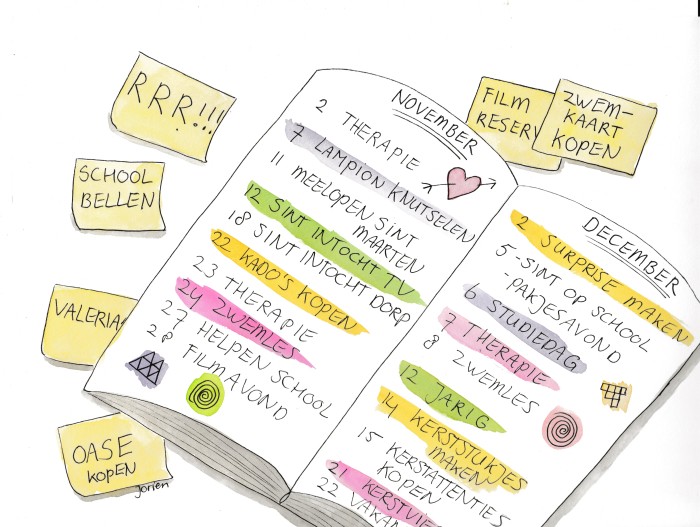 RRR!!!
SCHOOL
BELLEN
OASE
KOPEN
Jorien
NOVEMBER
2 THERAPIE
7 LAMPION KNUTSELEN
11 MEELOPEN SINT
MAARTEN
12 SINT INTOCHT TV
18 SINT INTOCHT DORP
22 KADO'S KOPEN
23 THERAPIE
24 ZWEMLES
27 HELPEN SCHOOL
28 FILMAVOND
FILM
ZWEM-
KAART
KOPEN
DECEMBER
2 SURPRISE MAKEN
5 -SINT OP SCHOOL
-PAKJESAVOND
6 STUDIEDAG
7 THERAPIE
8 ZWEMLES
12 JARIG
14 KERSTSTUKJES
MAKEN
15 KERSTATTENTIES
KOPEN
21
22